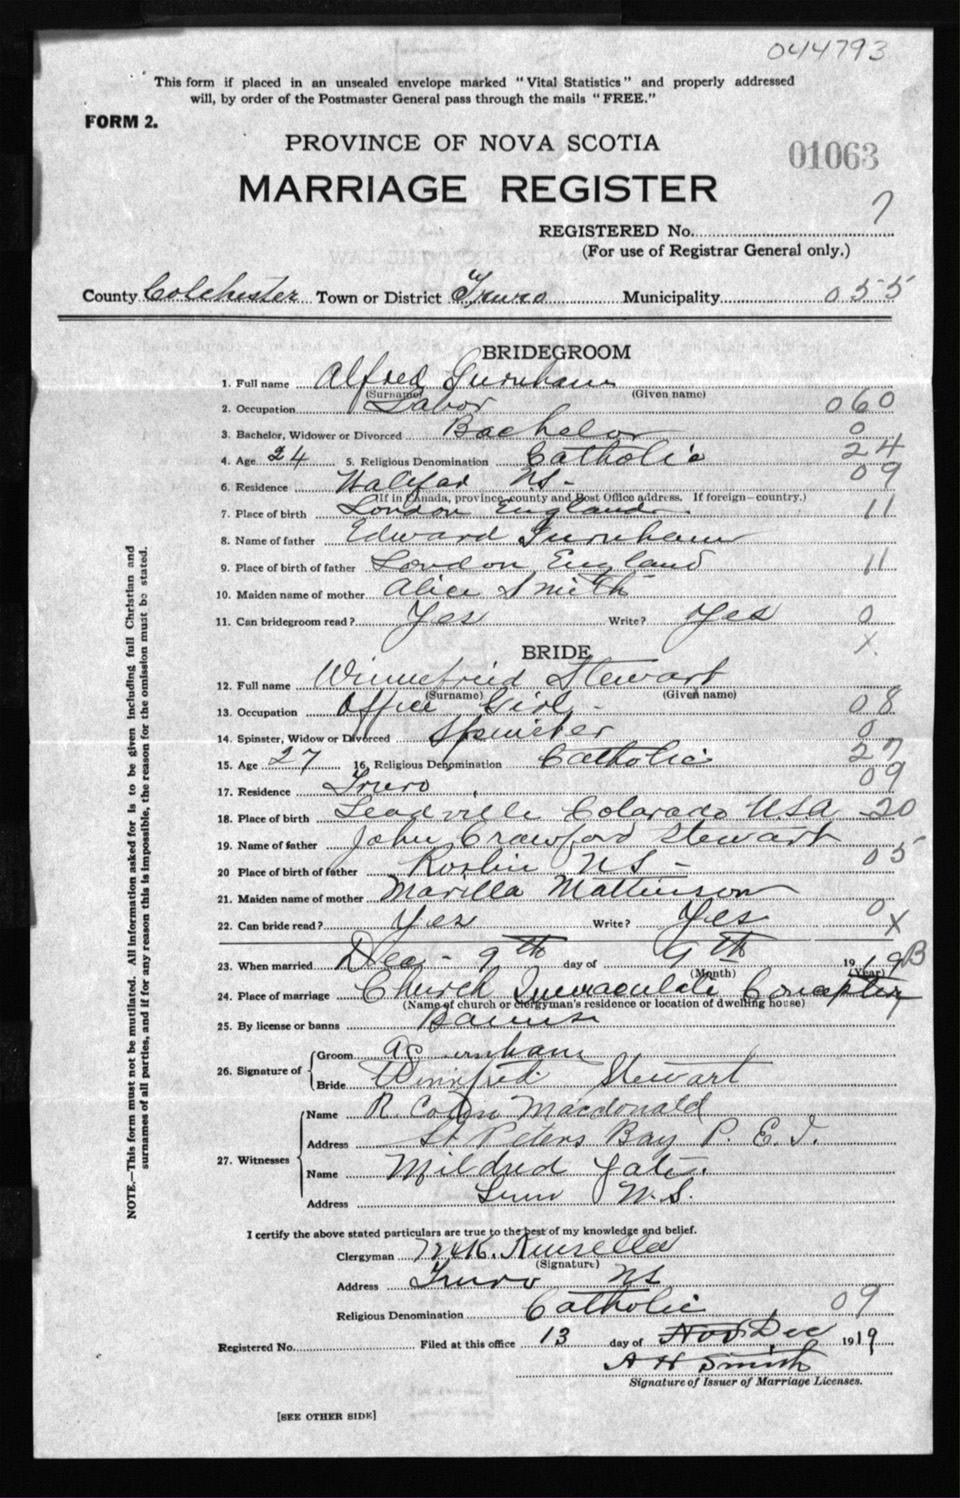 044793
This form if placed in an unsealed envelope marked "Vital Statistics" and properly addressed
will, by order of the Postmaster General pass through the mails "FREE."
FORM 2.
PROVINCE OF NOVA SCOTIA
01063
MARRIAGE REGISTER
REGISTERED No. 7
(For use of Registrar General only.)
County Colchester Town or District Truro Municipality 055
BRIDEGROOM
1. Full name Alfred Gurnham
(Surname) (Given name)
2. Occupation Labor 060
3. Bachelor, Widower or Divorced Bachelor 0
4. Age 24 5. Religious Denomination Catholic 24
6. Residence Halifax NS- 09
(If in Canada, province, county and Post Office address. If foreign—country.)
7. Place of birth London England. 11
8. Name of father Edward Gurnham
9. Place of birth of father London England 11
10. Maiden name of mother Alice Smith
11. Can bridegroom read? Yes Write? Yes 0
X
BRIDE
12. Full name Winnefried Stewart
(Surname) (Given name)
13. Occupation Office Girl - 08
14. Spinster, Widow or Divorced Spinster 0
15. Age 27 16. Religious Denomination Catholic 27
17. Residence Truro 09
18. Place of birth Leadville Colorado U.S.A 20
19. Name of father John Crawford Stewart
20 Place of birth of father Roslin NS - 05
21. Maiden name of mother Marilla Mattinson
22. Can bride read? Yes Write? Yes 0 X
23. When married Dec - 9th day of 9th 1919 B
(Month) (Year)
24. Place of marriage Church Immaculate Conception
(Name of church or clergyman's residence or location of dwelling house)
25. By license or banns Banns
26. Signature of
Groom
Bride Winnifred Stewart
27. Witnesses
Name R. Colin Macdonald
Address St Peters Bay P. E. I.
Name Mildred
Address Truro N.S.
I certify the above stated particulars are true to the best of my knowledge and belief.
Clergyman
(Signature)
Address Truro NS
Religious Denomination Catholic 09
Registered No. Filed at this office 13 day of Nov Dec 1919
A H Smith
Signature of Issuer of Marriage Licenses.
[SEE OTHER SIDE]
NOTE.—This form must not be mutilated. All information asked for is to be given including full Christian and
surnames of all parties, and if for any reason this is impossible, the reason for the omission must be stated.